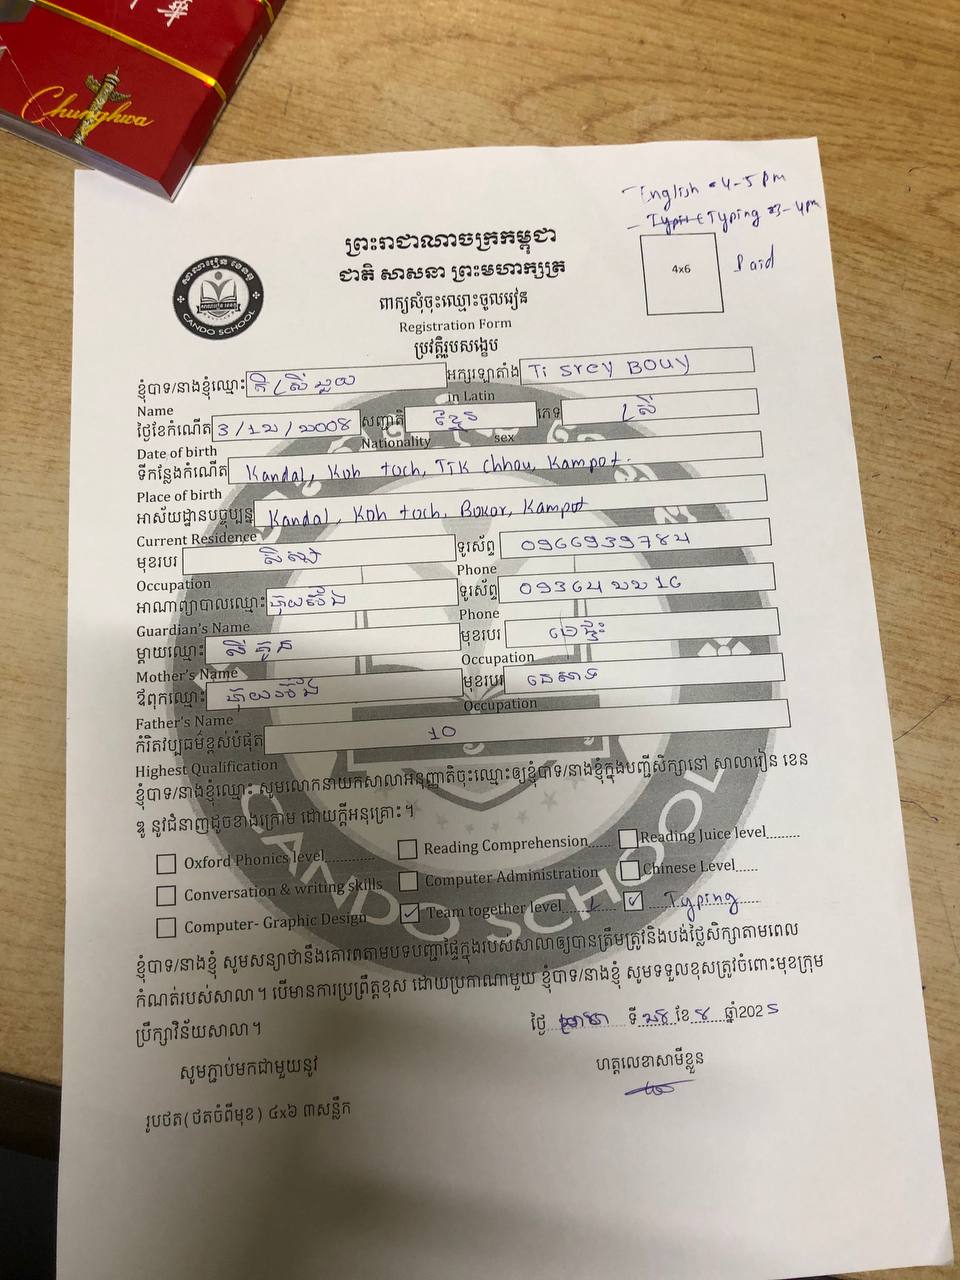 中華
Chunghwa
- English = 4-5 pm
- Typing = 3-4 pm
Paid
4x6
ព្រះរាជាណាចក្រកម្ពុជា
ជាតិ សាសនា ព្រះមហាក្សត្រ
ពាក្យសុំចុះឈ្មោះចូលរៀន
Registration Form
ប្រវត្តិរូបសង្ខេប
សាលារៀន ខេនឌូ
CANDO SCHOOL
ខ្ញុំបាទ/នាងខ្ញុំឈ្មោះ ស្រី អក្សរឡាតាំង Ti Srey Bouy
Name in Latin
ថ្ងៃខែកំណើត 3/12/2008 សញ្ជាតិ ខ្មែរ ភេទ ស្រី
Date of birth Nationality sex
ទីកន្លែងកំណើត Kandal, Koh toch, Tik Chhou, Kampot.
Place of birth
អាស័យដ្ឋានបច្ចុប្បន្ន Kandal, Koh toch, Bokor, Kampot
Current Residence
មុខរបរ សិស្ស ទូរស័ព្ទ 0966939784
Occupation Phone
អាណាព្យាបាលឈ្មោះ ទូរស័ព្ទ 093642216
Guardian's Name Phone
ម្តាយឈ្មោះ មុខរបរ មេផ្ទះ
Mother's Name Occupation
ឪពុកឈ្មោះ មុខរបរ នេសាទ
Father's Name Occupation
កំរិតវប្បធម៌ខ្ពស់បំផុត 10
Highest Qualification
ខ្ញុំបាទ/នាងខ្ញុំឈ្មោះ សូមលោកនាយកសាលាអនុញ្ញាតិចុះឈ្មោះឲ្យខ្ញុំបាទ/នាងខ្ញុំក្នុងបញ្ជីសិក្សានៅ សាលារៀន ខេន
ឌូ នូវជំនាញដូចខាងក្រោម ដោយក្តីអនុគ្រោះ។
Oxford Phonics level............ Reading Comprehension...... Reading Juice level.........
Conversation & writing skills Computer Administration Chinese Level......
Computer- Graphic Design ✓ Team together level 1 ✓ Typing
CANDO SCHOOL
ខ្ញុំបាទ/នាងខ្ញុំ សូមសន្យាថានឹងគោរពតាមបទបញ្ជាផ្ទៃក្នុងរបស់សាលាឲ្យបានត្រឹមត្រូវនិងបង់ថ្លៃសិក្សាតាមពេល
កំណត់របស់សាលា។ បើមានការប្រព្រឹត្តខុស ដោយប្រការណាមួយ ខ្ញុំបាទ/នាងខ្ញុំ សូមទទួលខុសត្រូវចំពោះមុខក្រុម
ប្រឹក្សាវិន័យសាលា។
ថ្ងៃ ទី ២៨ ខែ ៨ ឆ្នាំ2025
សូមភ្ជាប់មកជាមួយនូវ
ហត្ថលេខាសាមីខ្លួន
រូបថត(ថតចំពីមុខ) ៤x៦ ៣សន្លឹក